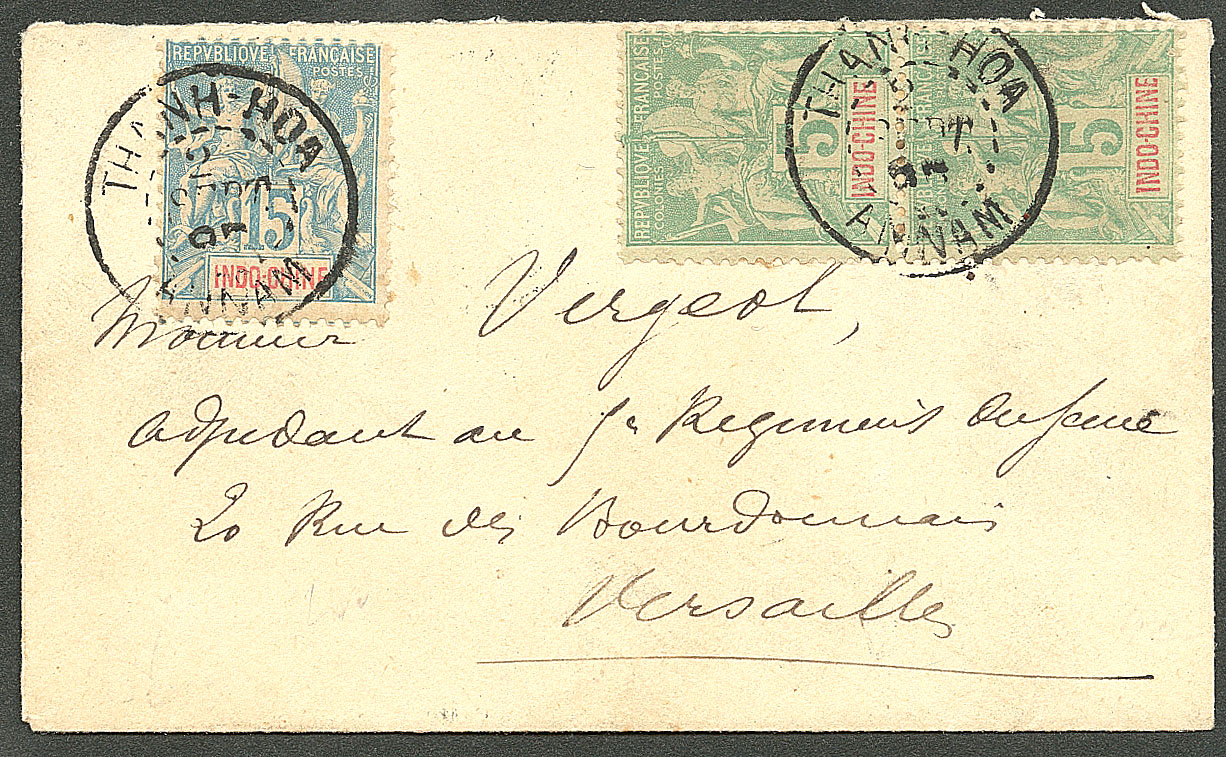 REPVBLIQVE FRANÇAISE
POSTES
15
INDO-CHINE
THANH-HOA
SEPT
95
ANNAM
REPVBLIQVE FRANÇAISE
COLONIES POSTES
5
INDO-CHINE
FRANÇAISE
5
INDO-CHINE
THANH-HOA
SEPT
95
ANNAM
Monsieur Vergeot,
Adjudant au 5e Regiment
20 Rue des Bourdonnais
Versailles